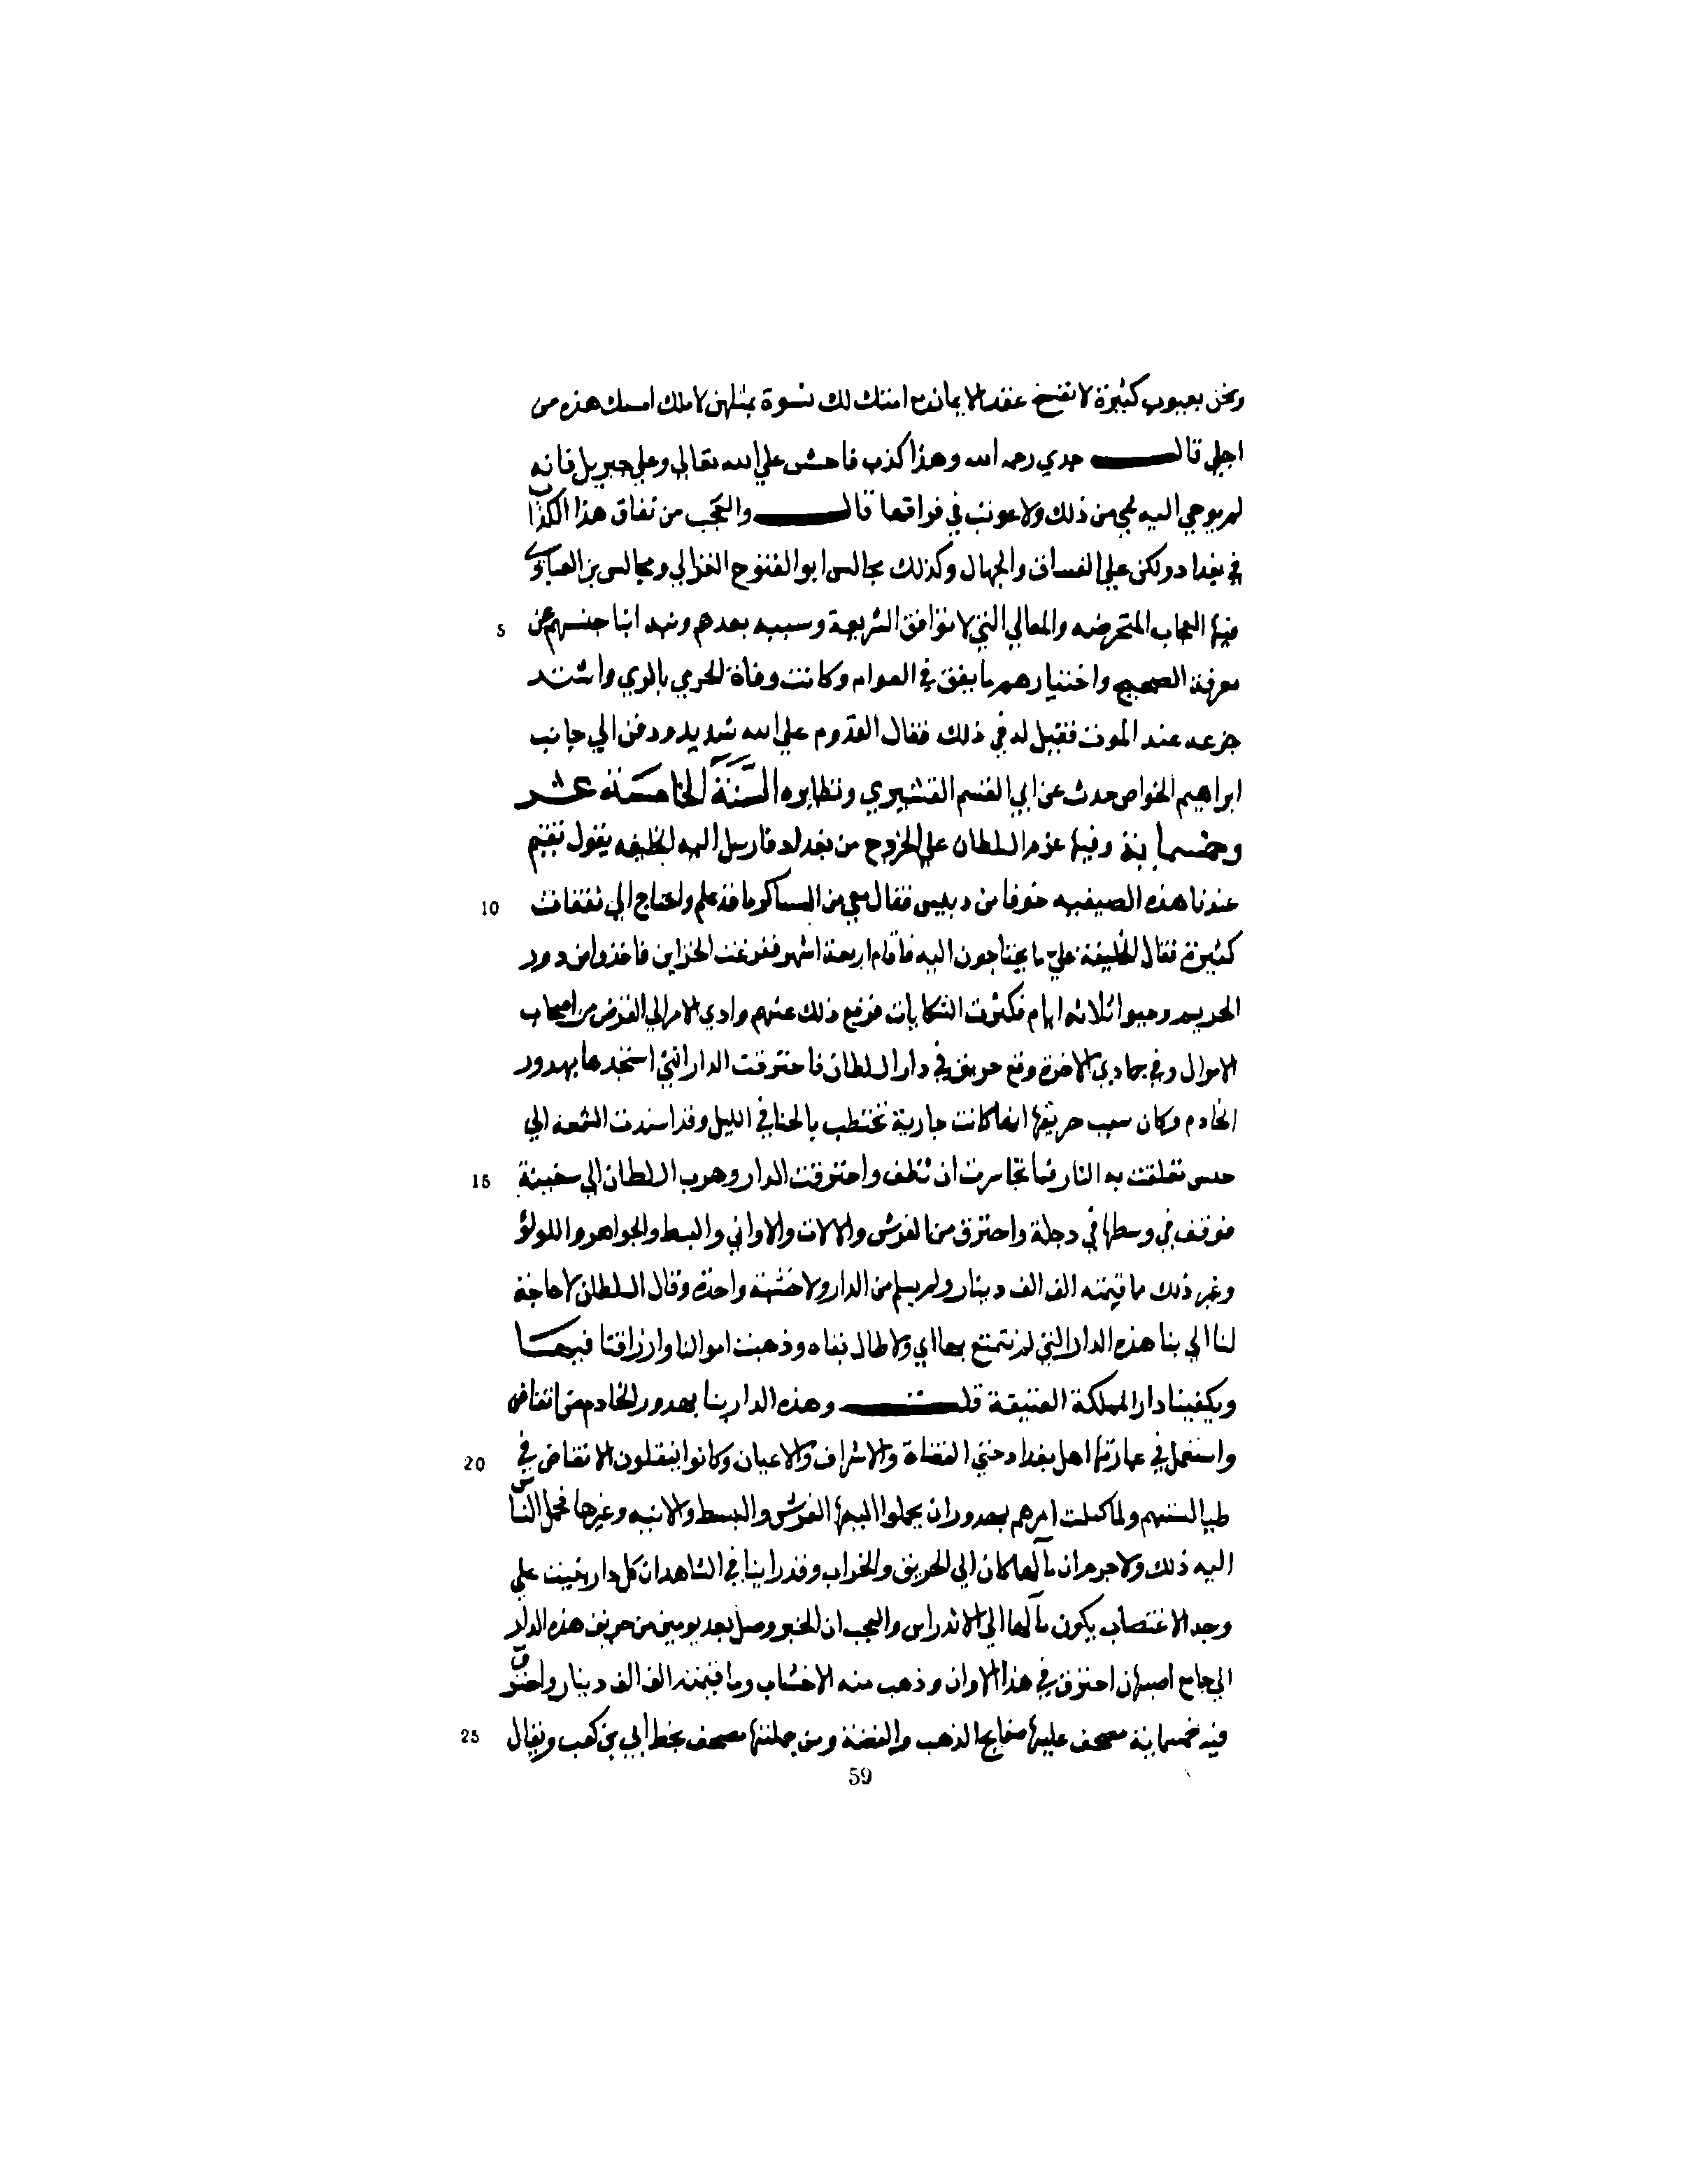 ونحن بعيوب كثيرة لا نفسخ عقد الايمان مع امتك لك نسوة بمثلهن لا ملك امسك هذه من
اجلي قال جدي رحمه الله وهذا كذب فاحش علي الله تعالي وعلي جبريل فانه
لم يوحي اليه شي من ذلك ولا عوتب في فراقها قال والعجب من نفاق هذا الكذاب
في بغداد ولكن علي الفساق والجهال وكذلك مجالس ابو الفتوح الغزالي ومجالس بن العبادي
فيها العجاب المتخرصه والمعاني التي لا توافق الشريعة وسببه بعدهم عن
معرفة الصحيح واختيارهم ما ينفق في العوام وكانت وفاة الحرمي بالري واشتد
جزعه عند الموت فقيل له في ذلك فقال القدوم علي الله شديد ودفن الي جانب
ابراهيم الخواص حدث عن ابي القسم القشيري ونظايره السنة الخامسة عشر
وخمسماية وفيها عزم السلطان علي الخروج من بغداد فارسل اليه الخليفه يقول تقيم
عندنا هذه الصيفيه خوفا من دبيس فقال معي من العساكر ما قد علم واحتاج الي نفقات
كثيرة فقال الخليفة علي ما يحتاجون اليه فاقام اربعة اشهر ففرغت الخزاين فاخذوا من دور
الحريم وجبوا ثلاثه ايام فكثرت الشكايات فرفع ذلك عنهم وادي الامر الي القرض من اصحاب
الاموال وفي جمادي الاخرة وقع حريق في دار السلطان فاحترقت الدار التي استجدها بهروز
الخادم وكان سبب حريقها انها كانت جارية تختضب بالحنا في الليل وقد اسندت الشمعه الي
خيش تعلقت به النار فما تجاسرت ان تنطف واحترقت الدار وهرب السلطان الي سفينة
فوقف في وسطها في دجلة واحترق من الفرش والالات والاواني والبسط والجواهر واللولؤ
وغير ذلك ما قيمته الف الف دينار ولم يسلم من الدار ولا خشبة واحدة وقال السلطان لا حاجة
لنا الي بنا هذه الدار التي لم نتمتع بها اي ولا طال بقاه وذهبت اموالنا وارزاقنا فيها
ويكفينا دار المملكة العتيقة قلت وهذه الدار بنا بهروز الخادم من انقاض
واستعمل في عمارتها اهل بغداد حتي القضاة والاشراف والاعيان وكانوا ينقلون الانقاض في
طيالستهم ولما كملت امرهم بهروز ان يحملوا اليها الفرش والبسط والانيه وغيرها فحمل الناس
اليه ذلك ولا جرم ان مآلها كان الي الحريق والخراب وقد راينا في الشاهد ان كل دار بنيت علي
وجه الاغتصاب يكون مآلها الي الاندراس والعجب ان الخبر وصل بعد يومين من حريق هذه الدار
الي جامع اصبهان احترق في هذا الاوان وذهب منه الاخشاب وما قيمته الف الف دينار واحترق
فيه خمسماية مصحف عليها صفايح الذهب والفضة ومن جملتها مصحف بخط ابي بن كعب ويقال
59